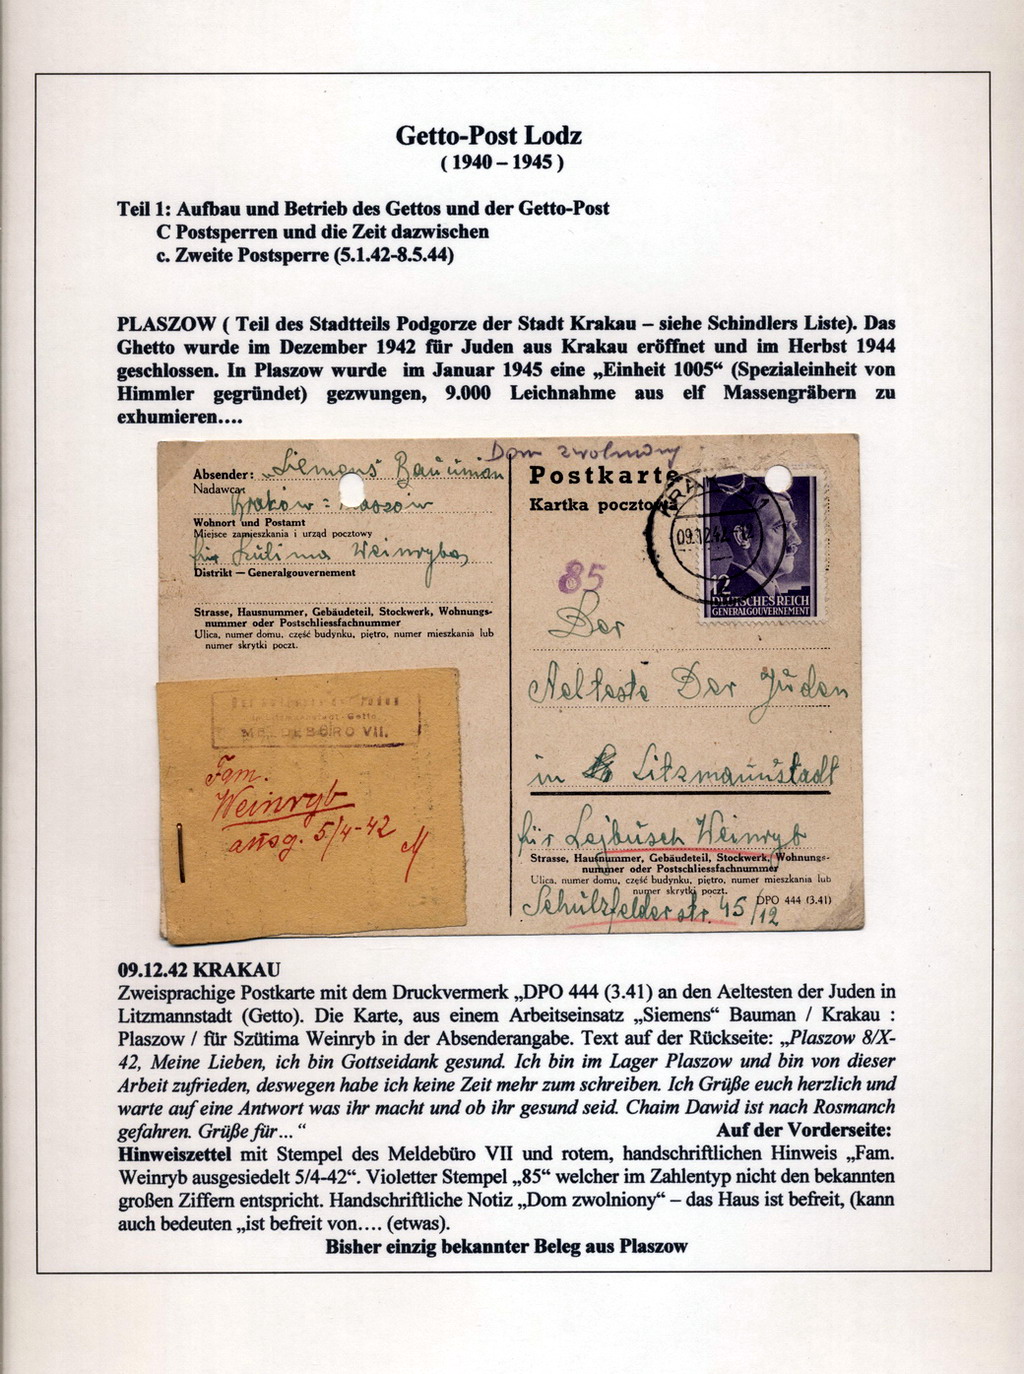 Getto-Post Lodz
( 1940 – 1945 )
Teil 1: Aufbau und Betrieb des Gettos und der Getto-Post
C Postsperren und die Zeit dazwischen
c. Zweite Postsperre (5.1.42-8.5.44)
PLASZOW ( Teil des Stadtteils Podgorze der Stadt Krakau – siehe Schindlers Liste). Das
Ghetto wurde im Dezember 1942 für Juden aus Krakau eröffnet und im Herbst 1944
geschlossen. In Plaszow wurde im Januar 1945 eine „Einheit 1005“ (Spezialeinheit von
Himmler gegründet) gezwungen, 9.000 Leichnahme aus elf Massengräbern zu
exhumieren....
Dom zwolniony
Absender: „Siemens" Bauuman
Nadawca:
Kraków : aszów
Wohnort und Postamt
Miejsce zamieszkania i urząd pocztowy
für Weinryba
Distrikt — Generalgouvernement
Strasse, Hausnummer, Gebäudeteil, Stockwerk, Wohnungs-
nummer oder Postschliessfachnummer
Ulica, numer domu, część budynku, piętro, numer mieszkania lub
numer skrytki poczt.
der Juden
Getto
MELDEBÜRO VII.
Fam.
Weinryb
ausg. 5/4-42
Postkarte
Kartka pocztowa
KRAK 1
09.12.42
12
DEUTSCHES REICH
GENERALGOUVERNEMENT
85
Der
Aelteste Der Juden
in Litzmannstadt
für Lejbusch Weinryb
Strasse, Hausnummer, Gebäudeteil, Stockwerk, Wohnungs-
nummer oder Postschliessfachnummer
Ulica, numer domu, część budynku, piętro, numer mieszkania lub
numer skrytki poczt.
DPO 444 (3.41)
Schulzfelderstr. 45/12
09.12.42 KRAKAU
Zweisprachige Postkarte mit dem Druckvermerk „DPO 444 (3.41) an den Aeltesten der Juden in
Litzmannstadt (Getto). Die Karte, aus einem Arbeitseinsatz „Siemens“ Bauman / Krakau :
Plaszow / für Szütima Weinryb in der Absenderangabe. Text auf der Rückseite: „Plaszow 8/X-
42, Meine Lieben, ich bin Gottseidank gesund. Ich bin im Lager Plaszow und bin von dieser
Arbeit zufrieden, deswegen habe ich keine Zeit mehr zum schreiben. Ich Grüße euch herzlich und
warte auf eine Antwort was ihr macht und ob ihr gesund seid. Chaim Dawid ist nach Rosmanch
gefahren. Grüße für... “ Auf der Vorderseite:
Hinweiszettel mit Stempel des Meldebüro VII und rotem, handschriftlichen Hinweis „Fam.
Weinryb ausgesiedelt 5/4-42“. Violetter Stempel „85“ welcher im Zahlentyp nicht den bekannten
großen Ziffern entspricht. Handschriftliche Notiz „Dom zwolniony“ – das Haus ist befreit, (kann
auch bedeuten „ist befreit von.... (etwas).
Bisher einzig bekannter Beleg aus Plaszow